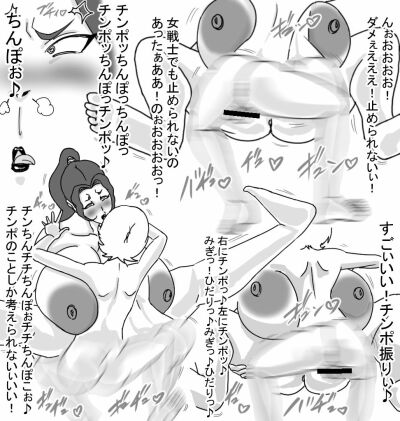 んぉおおおお！
ダメぇえええ！止められない！
女戦士でも止められないの
あったぁああ！のぉおおおおっ！
チンポッちんぽっちんぽっ
チンポッちんぽっチンポッ♪
ちんぽぉ♪
すごいいい！チンポ振りぃ♪
右にチンポっ♪左にチンポッ♪
みぎっ！ひだりっ♪みぎっ♪ひだりっ♪
チンちんチチちんぽぉチチちんぽこぉ♪
チンポのことしか考えられないいい！